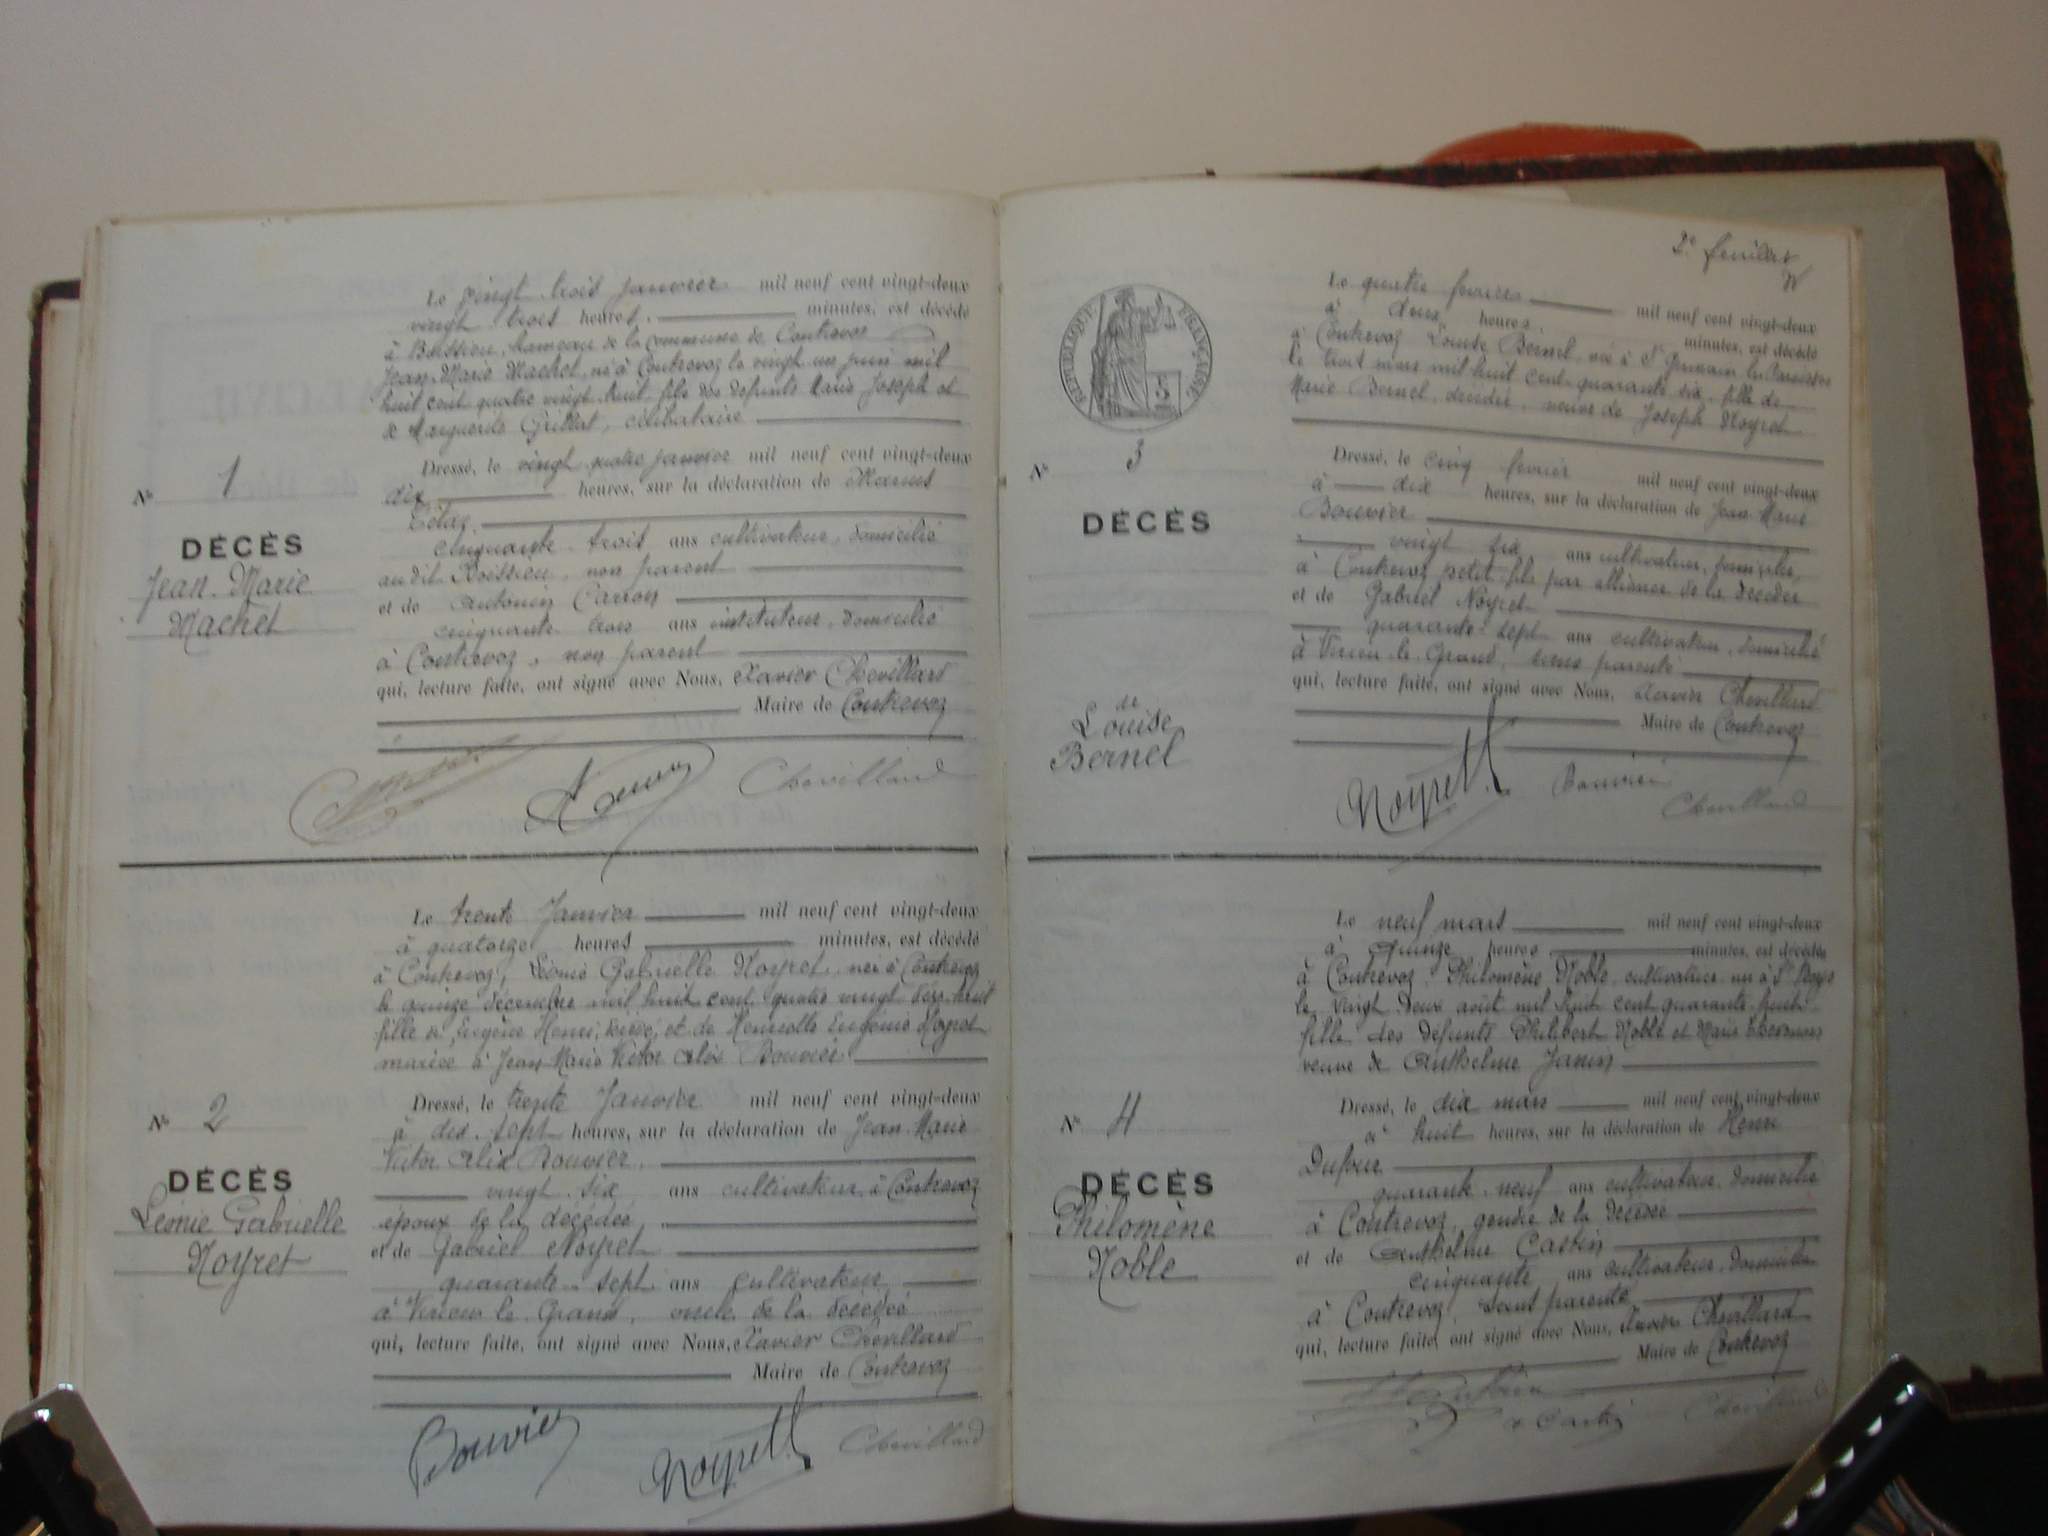 Le vingt trois janvier mil neuf cent vingt-deux
vingt trois heures, minutes, est décédé
à Boissieu, hameau de la commune de Contrevoz
Jean-Marie Machet, né à Contrevoz le vingt un juin mil
huit cent quatre vingt huit, fils des défunts Marie Joseph et
de Marguerite Grillet, célibataire
Dressé, le vingt quatre janvier mil neuf cent vingt-deux
dix heures, sur la déclaration de Marius
cinquante trois ans cultivateur, domicilié
au dit Boissieu, non parent
et de Antonin Carron
cinquante trois ans instituteur, domicilié
à Contrevoz, non parent
qui, lecture faite, ont signé avec Nous, Xavier Chevillard
Maire de Contrevoz
Chevillard
N° 1
DÉCÈS
Jean-Marie
Machet
Le trente Janvier mil neuf cent vingt-deux
à quatorze heures minutes, est décédé
à Contrevoz, Léonie Gabrielle Noyret, née à Contrevoz
le quinze décembre mil huit cent quatre vingt dix huit
fille de Eugène Henri, et de Henriette Eugénie Noyret
mariée à Jean Marie Victor Alix Bouvier
Dressé, le trente Janvier mil neuf cent vingt-deux
à dix sept heures, sur la déclaration de Jean Marie
Victor Alix Bouvier,
vingt six ans cultivateur, à Contrevoz
époux de la décédée,
et de Gabriel Noyret
quarante sept ans cultivateur
à Virieu le Grand, oncle de la décédée
qui, lecture faite, ont signé avec Nous, Xavier Chevillard
Maire de Contrevoz
Bouvier Noyret Chevillard
N° 2
DÉCÈS
Léonie Gabrielle
Noyret
2e feuillet
RÉPUBLIQUE FRANÇAISE
Le quatre février mil neuf cent vingt-deux
à deux heures. minutes, est décédé
à Contrevoz Louise Bernel, née à St Germain les Paroisses
le trois mars mil huit cent quarante six, fille de
Marie Bernel, décédée, veuve de Joseph Noyret
Dressé, le cinq février mil neuf cent vingt-deux
à dix heures, sur la déclaration de Jean Marie
Bouvier
vingt six ans cultivateur, domicilié,
à Contrevoz petit fils par alliance de la décédée
et de Gabriel Noyret
quarante sept ans cultivateur, domicilié
à Virieu le Grand, sans parenté
qui, lecture faite, ont signé avec Nous, Xavier Chevillard
Maire de Contrevoz
Noyret Bouvier
Chevillard
N° 3
DÉCÈS
de
Louise
Bernel
Le neuf mars mil neuf cent vingt-deux
à quinze heures minutes, est décédée
à Contrevoz Philomène Noble, cultivatrice née à St
le vingt deux août mil huit cent quarante huit
fille des défunts Philibert Noble et Marie
veuve de Anthelme Janin
Dressé, le dix mars mil neuf cent vingt-deux
à huit heures, sur la déclaration de Henri
Dufour
quarante neuf ans cultivateur, domicilié
à Contrevoz, gendre de la décédée
et de Anthelme Castin
cinquante ans cultivateur, domicilié
à Contrevoz, sans parenté
qui, lecture faite, ont signé avec Nous, Xavier Chevillard
Maire de Contrevoz
Chevillard
N° 4
DÉCÈS
Philomène
Noble